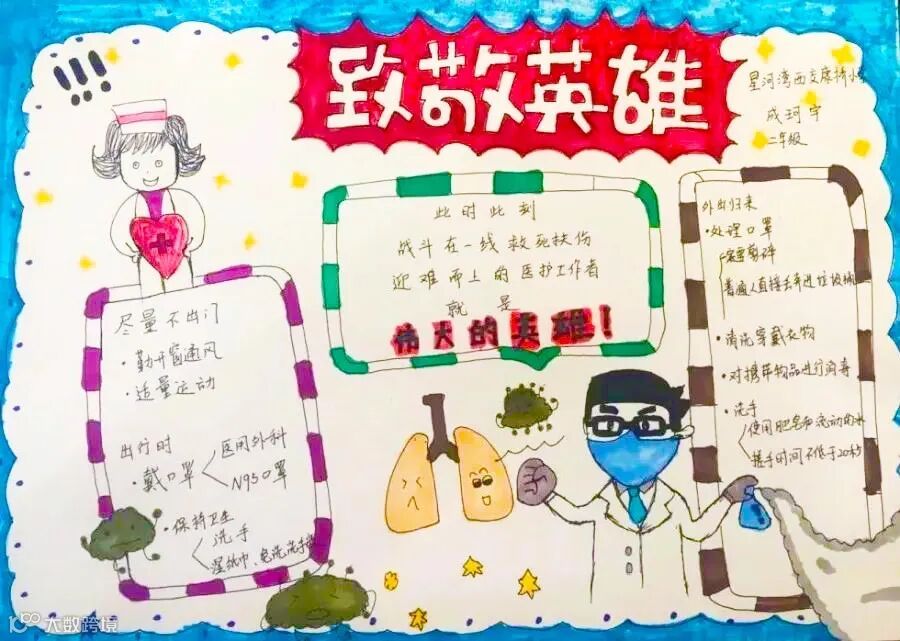 !!!
致敬英雄
星河湾西交康桥小
成珂宇
二年级
此时此刻
战斗在一线救死扶伤
迎难而上的医护工作者
就是
伟大的英雄!
尽量不出门
·勤开窗通风
·适量运动
出行时
·戴口罩
医用外科
N95口罩
·保持卫生
洗手
湿纸巾、免洗洗手
外出归来
·处理口罩
普通人直接丢弃进垃圾桶
·清洗穿戴衣物
·对携带物品进行消毒
·洗手
使用肥皂和流动的水
搓手时间不低于20秒
大数跨境